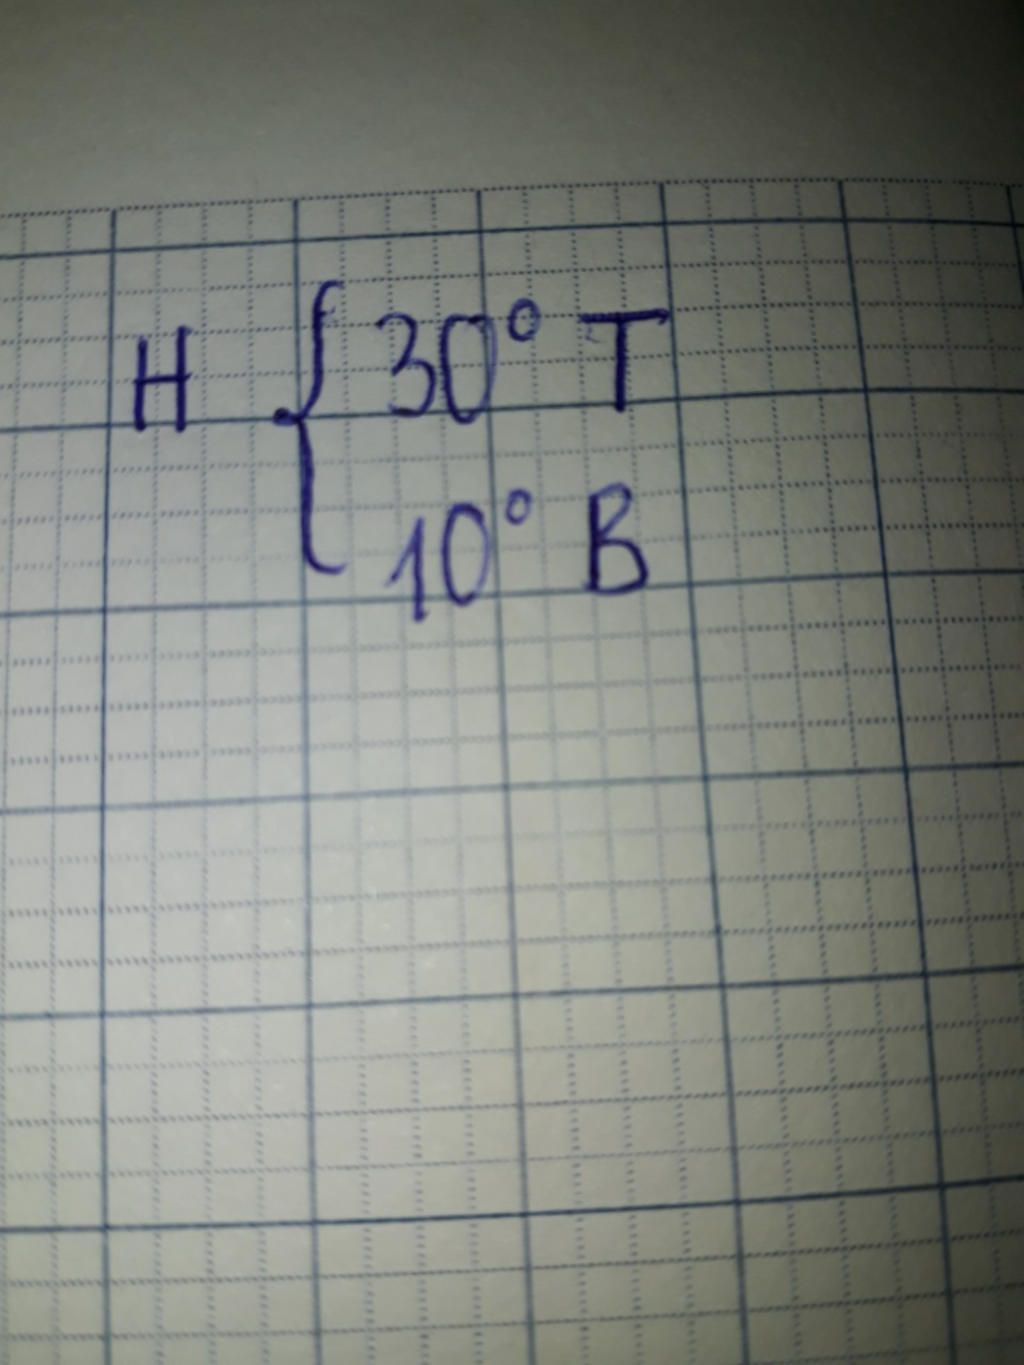 H { 30° T
10° B